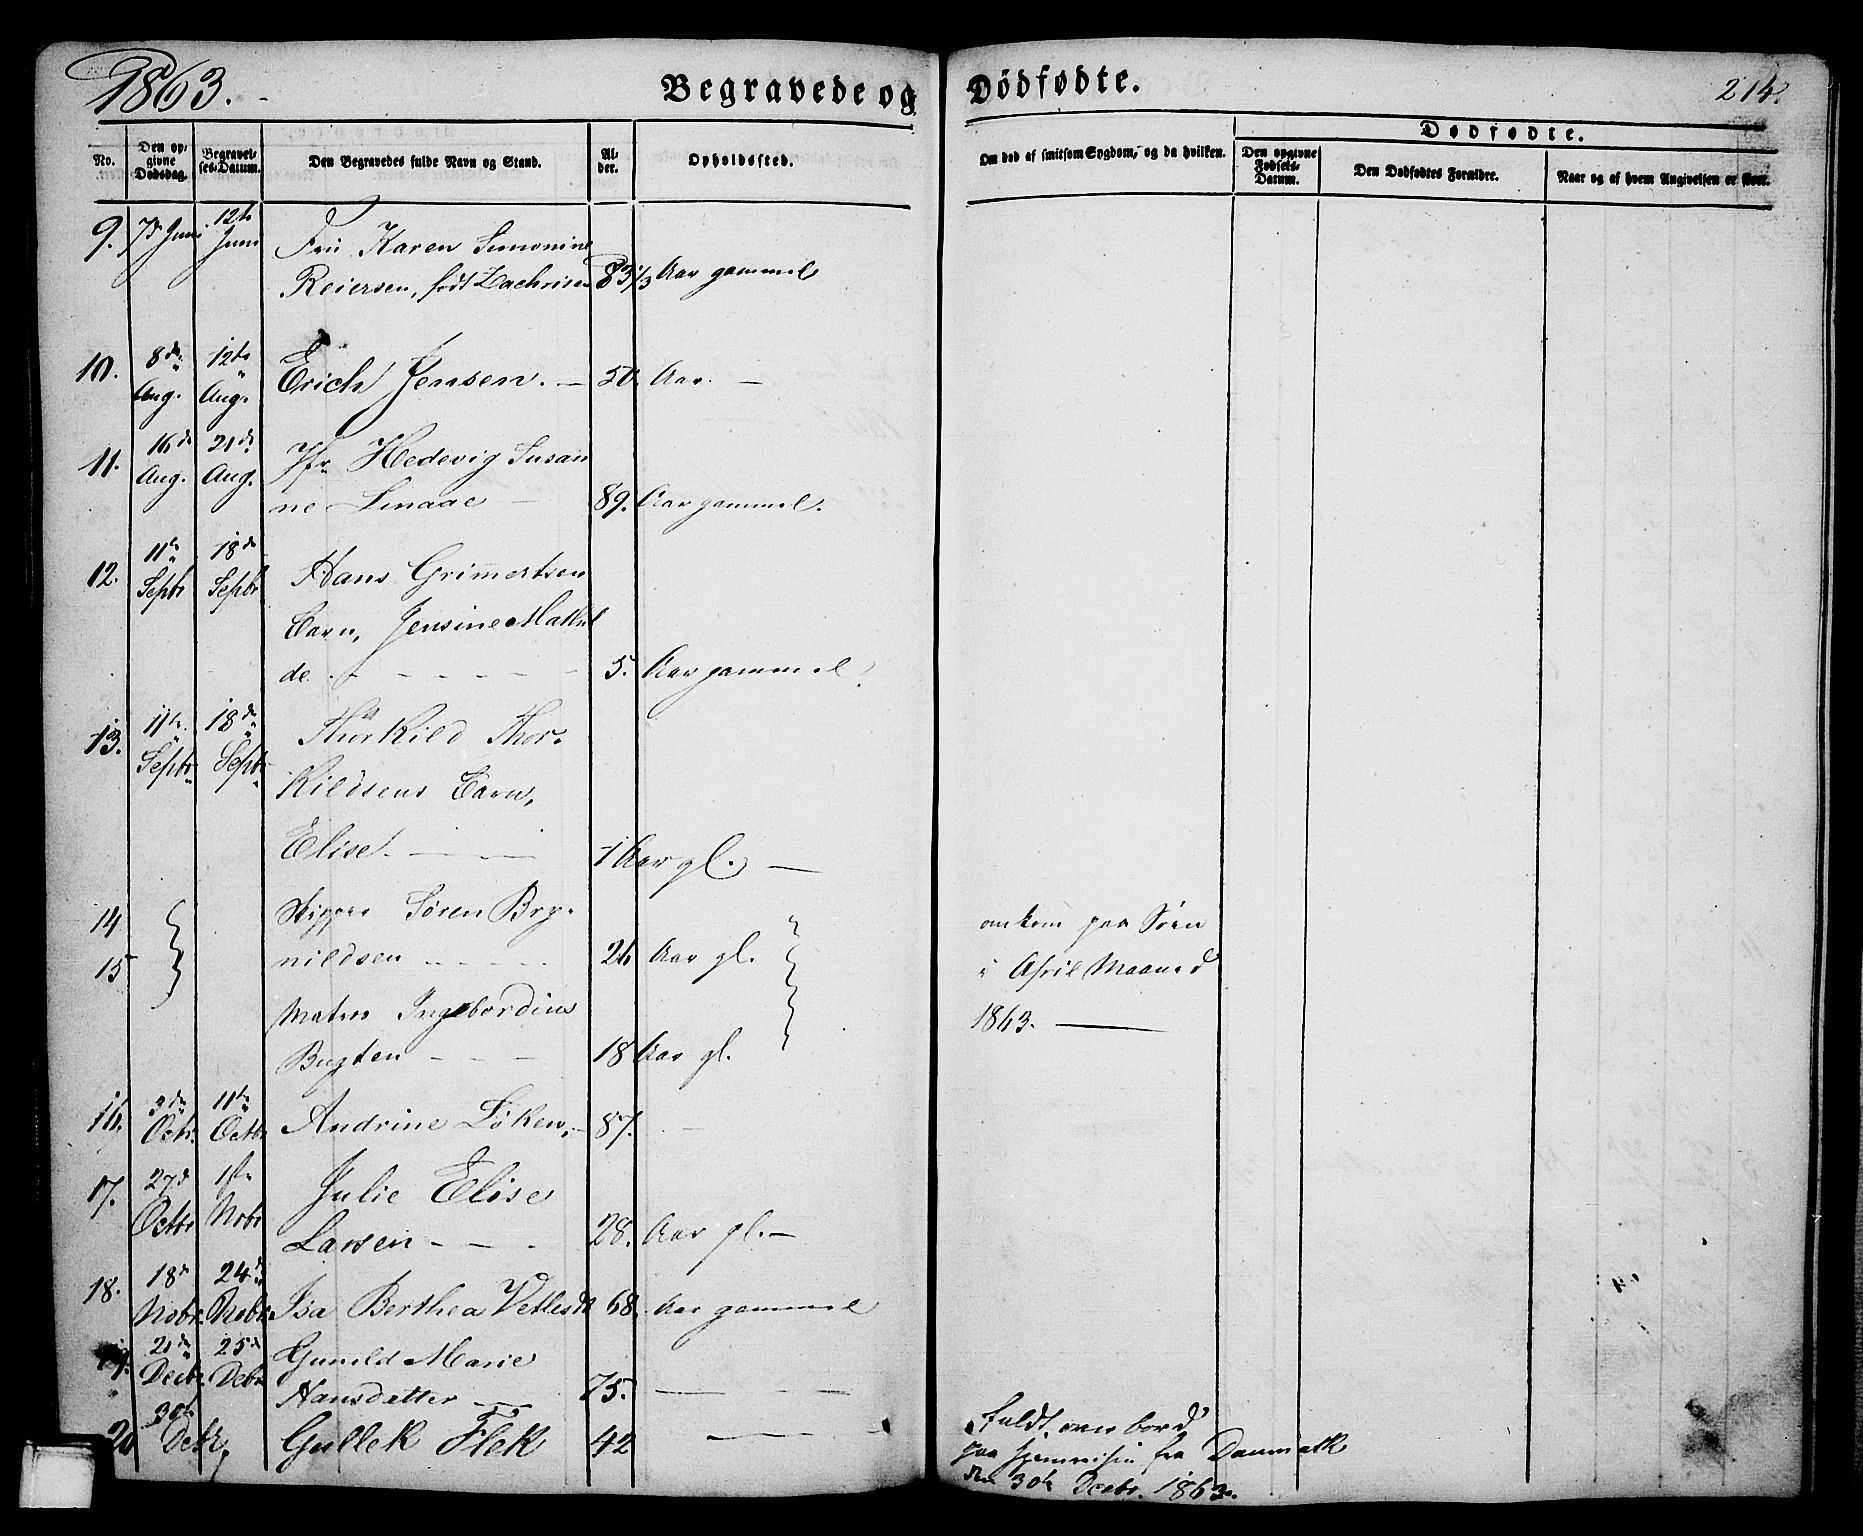 1863.
Begravede og Dødfødte.
214.
No.
Den opgivne Dødsdag.
Begravelses-Datum.
Den Begravedes fulde Navn og Stand.
Alder.
Opholdssted.
Om død af smitsom Sygdom, og da hvilken.
Dødfødte.
Den opgivne Fødsels-Datum.
Den Dødfødtes Forældre.
Naar og af hvem Angivelsen er skeet.
9. 7d Juni 12te Juni Fru Karen Simonine
Reiersen, født Zachrisen 83 1/3 Aar gammel
10. 8de Aug. 12te Aug. Erich Jensen. — 50. Aar. —
11. 16de Aug. 21de Aug. Jfr. Hedevig Susan
ne — 89. Aar gammel.
12. 11te Septbr 18de Septbr Hans Grimertsen
Barn, Jensine Mathil
de. 5. Aar gammel.
13. 11te Septbr 18de Septbr Thorkild Thor-
kildsens Barn,
Elise. — 1 Aar gl. —
14 Skipper Søren Bry-
15 nildsen — 26 Aar gl. omkom paa Søen
i April Maaned
Matros Ingebordius
1863. —
Bugten — 18 Aar gl.
16. 3de Octr. 11te Octbr Andrine Løken, 87. —
17. 27d Octbr 1ste Nobr Julie Elise
Larsen — 28. Aar gl. —
18. 18d Nobr. 24de Nobr. Isa Berthea 68. Aar gammel
19. 21de Decbr. 25d Debr Gunild Marie
Hansdatter — 75. —
20 30te Debr. Gullek Flek 42 —
faldt over bord
paa Hjemreisen fra Danmark
den 30te Decbr. 1863.